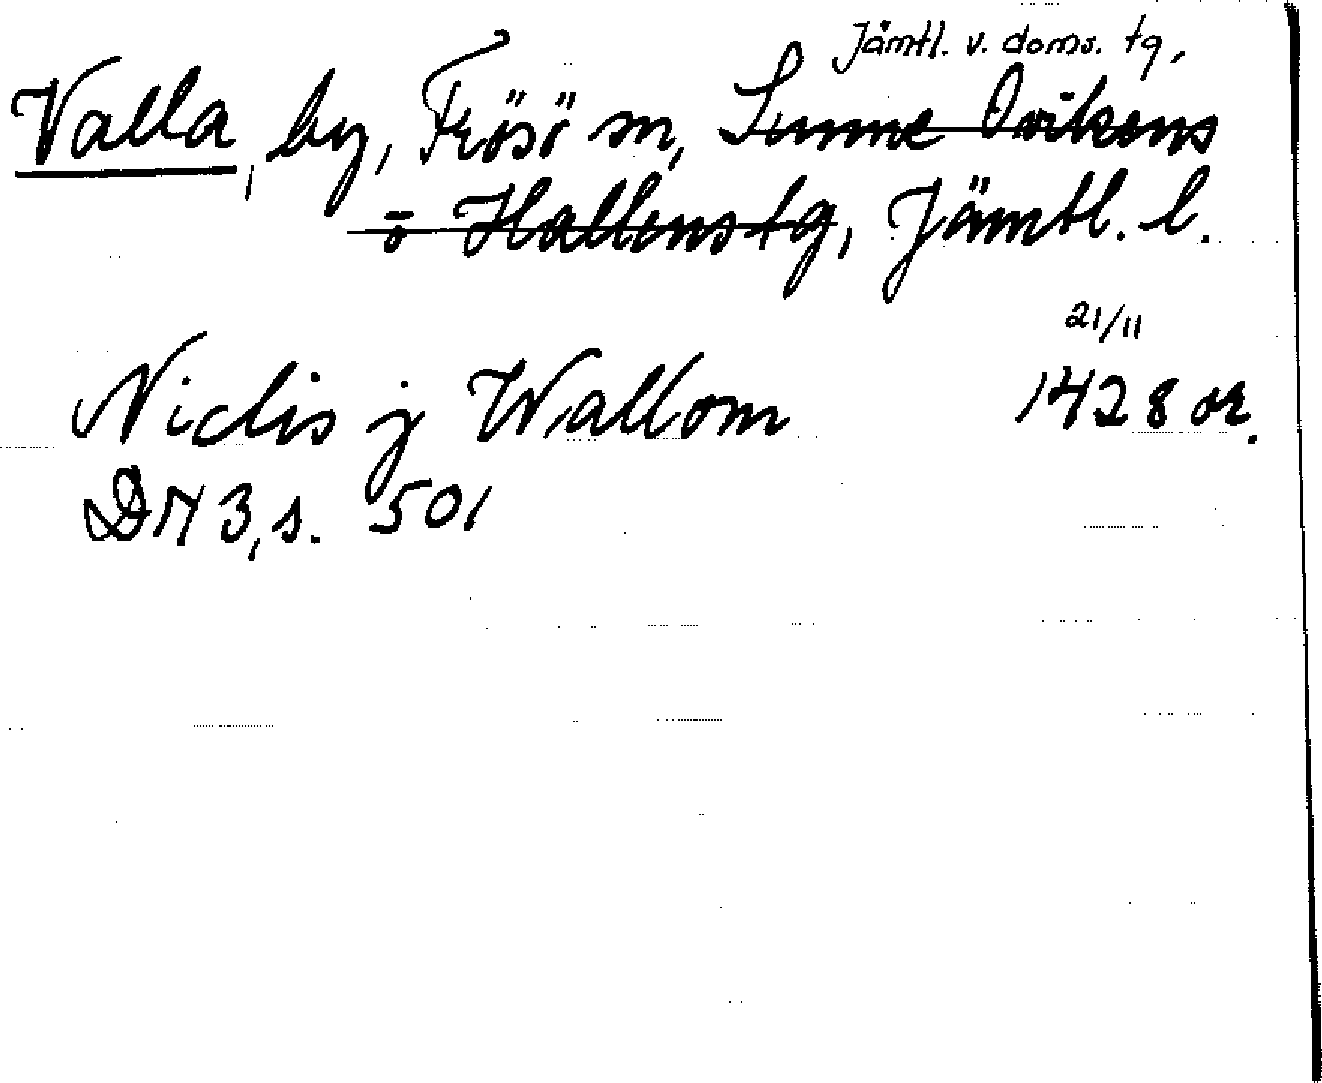 Jämtl. v. doms. tg,
Valla, by, Frösö sn, Sunne Ovikens
o Hallens tg, Jämtl. l.
21/11
Niclis j Wallom 1428 or.
DN 3, s. 501